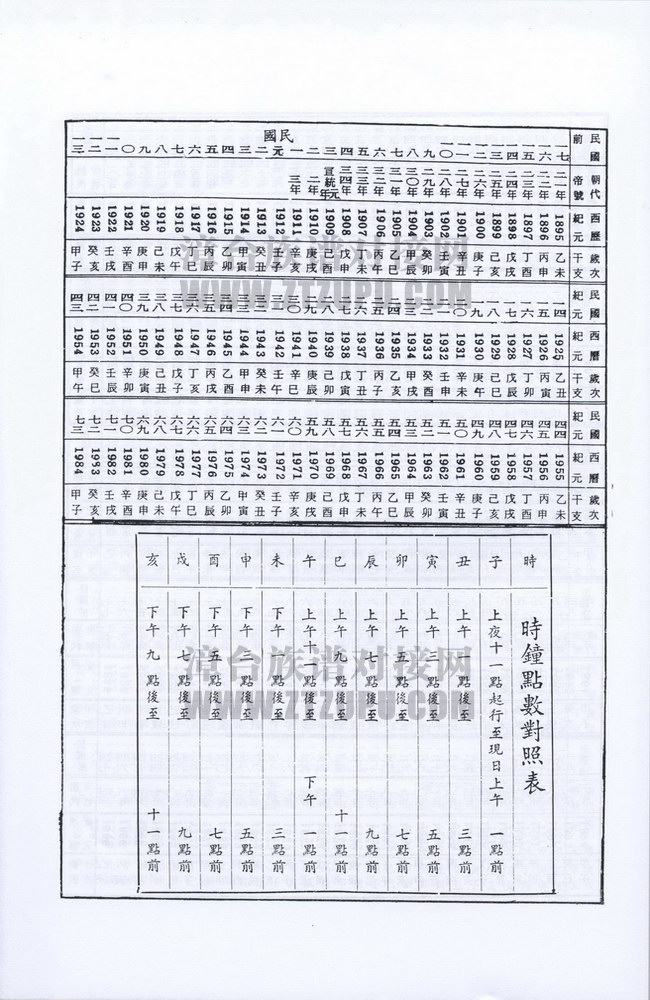 民國前 朝代帝號 西歷紀元 歲次干支
一七 二一年 1895 乙未
一六 二二年 1896 丙申
一五 二三年 1897 丁酉
一四 二四年 1898 戊戌
一三 二五年 1899 己亥
一二 二六年 1900 庚子
一一 二七年 1901 辛丑
一〇 二八年 1902 壬寅
九 二九年 1903 癸卯
八 三〇年 1904 甲辰
七 三一年 1905 乙巳
六 三二年 1906 丙午
五 三三年 1907 丁未
四 三四年 1908 戊申
三 宣統元年 1909 己酉
二 二年 1910 庚戌
一 三年 1911 辛亥
民國
元 1912 壬子
二 1913 癸丑
三 1914 甲寅
四 1915 乙卯
五 1916 丙辰
六 1917 丁巳
七 1918 戊午
八 1919 己未
九 1920 庚申
一〇 1921 辛酉
一一 1922 壬戌
一二 1923 癸亥
一三 1924 甲子
民國紀元 西曆紀元 歲次干支
一四 1925 乙丑
一五 1926 丙寅
一六 1927 丁卯
一七 1928 戊辰
一八 1929 己巳
一九 1930 庚午
二〇 1931 辛未
二一 1932 壬申
二二 1933 癸酉
二三 1934 甲戌
二四 1935 乙亥
二五 1936 丙子
二六 1937 丁丑
二七 1938 戊寅
二八 1939 己卯
二九 1940 庚辰
三〇 1941 辛巳
三一 1942 壬午
三二 1943 癸未
三三 1944 甲申
三四 1945 乙酉
三五 1946 丙戌
三六 1947 丁亥
三七 1948 戊子
三八 1949 己丑
三九 1950 庚寅
四〇 1951 辛卯
四一 1952 壬辰
四二 1953 癸巳
四三 1954 甲午
民國紀元 西曆紀元 歲次干支
四四 1955 乙未
四五 1956 丙申
四六 1957 丁酉
四七 1958 戊戌
四八 1959 己亥
四九 1960 庚子
五〇 1961 辛丑
五一 1962 壬寅
五二 1963 癸卯
五三 1964 甲辰
五四 1965 乙巳
五五 1966 丙午
五六 1967 丁未
五七 1968 戊申
五八 1969 己酉
五九 1970 庚戌
六〇 1971 辛亥
六一 1972 壬子
六二 1973 癸丑
六三 1974 甲寅
六四 1975 乙卯
六五 1976 丙辰
六六 1977 丁巳
六七 1978 戊午
六八 1979 己未
六九 1980 庚申
七〇 1981 辛酉
七一 1982 壬戌
七二 1983 癸亥
七三 1984 甲子
時 時鐘點數對照表
子 上夜十一點起行至現日上午一點前
丑 上午一點後至三點前
寅 上午三點後至五點前
卯 上午五點後至七點前
辰 上午七點後至九點前
巳 上午九點後至十一點前
午 上午十一點後至下午一點前
未 下午一點後至三點前
申 下午三點後至五點前
酉 下午五點後至七點前
戌 下午七點後至九點前
亥 下午九點後至十一點前
漳台族谱对接网
WWW.ZTZUPU.COM
漳台族谱对接网
WWW.ZTZUPU.COM